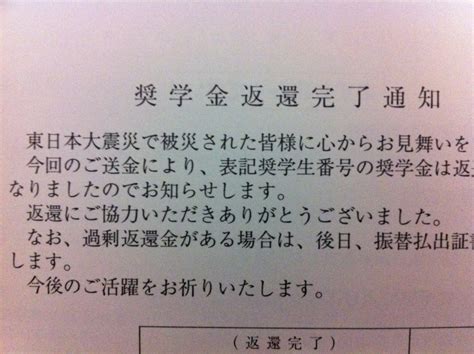 奨学金返還完了通知
東日本大震災で被災された皆様に心からお見舞いを
今回のご送金により、表記奨学生番号の奨学金は返
なりましたのでお知らせします。
返還にご協力いただきありがとうございました。
なお、過剰返還金がある場合は、後日、振替払出証
します。
今後のご活躍をお祈りいたします。
(返還完了)